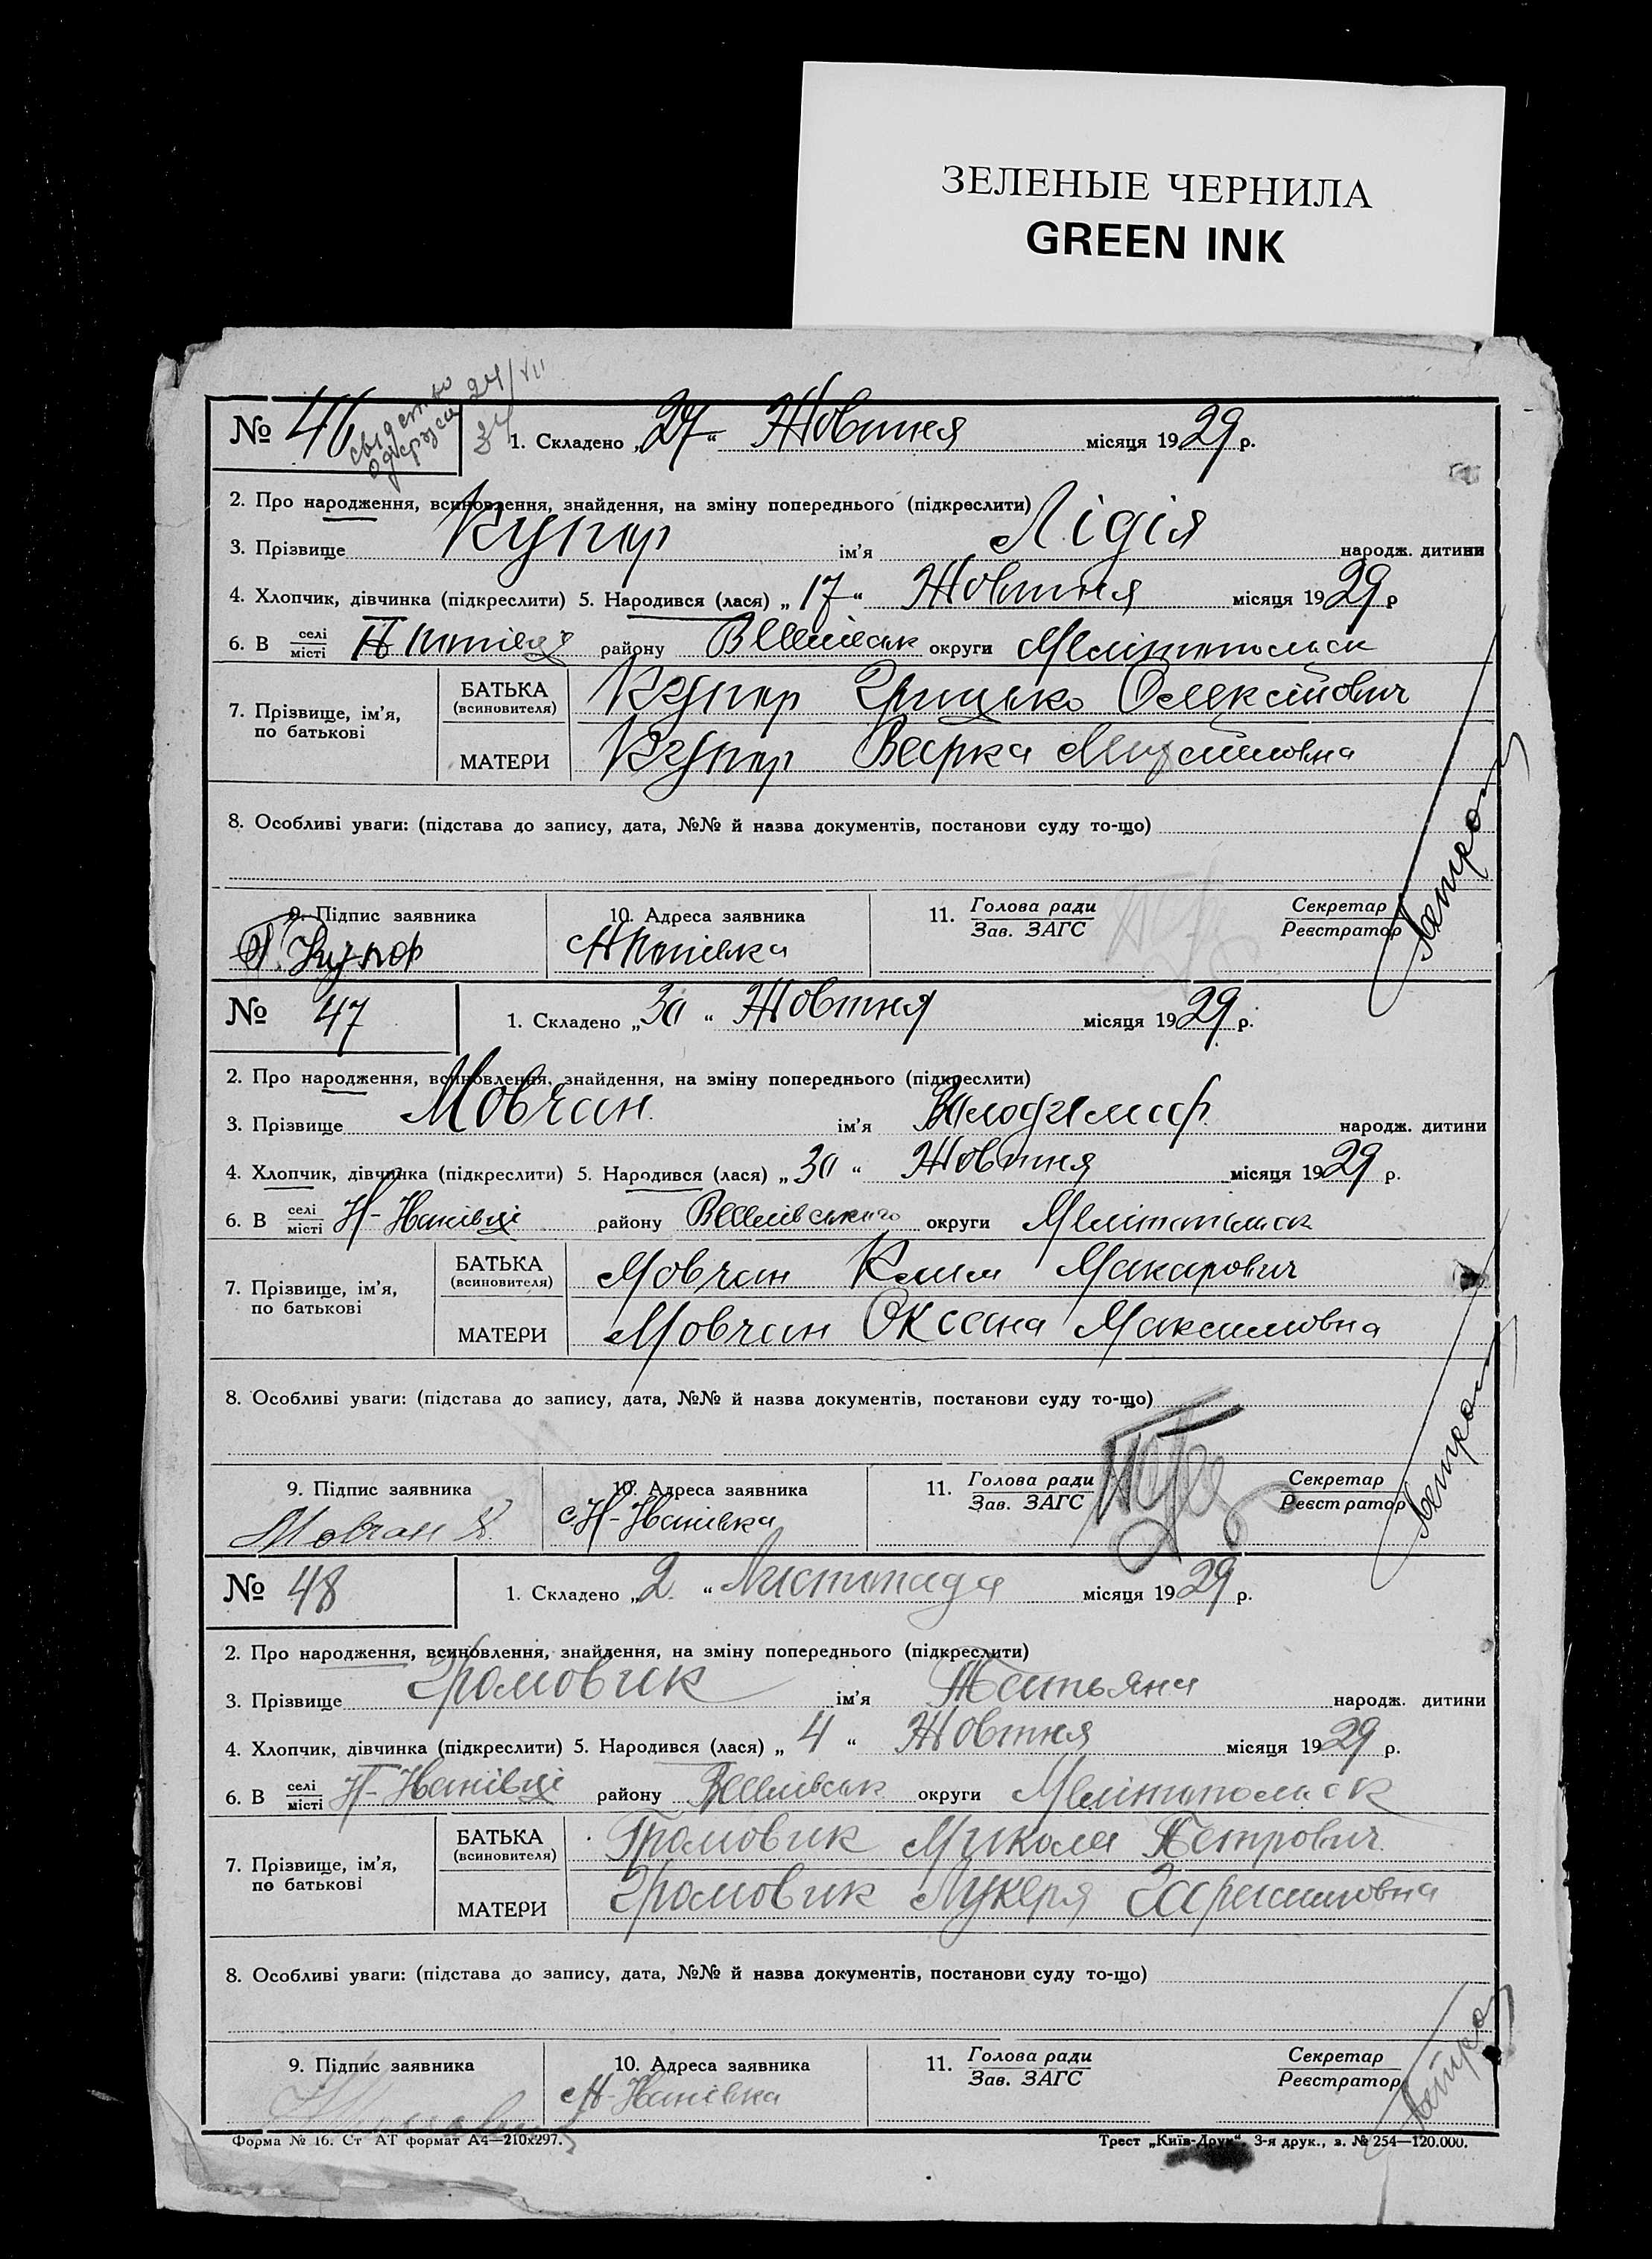 ЗЕЛЕНЫЕ ЧЕРНИЛА
GREEN INK
№ 46 1. Складено „27“ Жовтня місяця 1929 р.
2. Про народження, всиновлення, знайдення, на зміну попереднього (підкреслити)
3. Прізвище Купир ім'я Лідія народж. дитини
4. Хлопчик, дівчинка (підкреслити) 5. Народився (лася) „17“ Жовтня місяця 1929 р
6. В селі місті району округи Мелітопольск
7. Прізвище, ім'я, по батькові
БАТЬКА (всиновителя) Купир Грицько Олексійович
МАТЕРИ Купир
8. Особливі уваги: (підстава до запису, дата, №№ й назва документів, постанови суду то-що)
9. Підпис заявника 10. Адреса заявника 11. Голова ради Зав. ЗАГС Секретар Реєстратор
№ 47 1. Складено „30“ Жовтня місяця 1929 р.
2. Про народження, всиновлення, знайдення, на зміну попереднього (підкреслити)
3. Прізвище Мовчан ім'я Володимир народж. дитини
4. Хлопчик, дівчинка (підкреслити) 5. Народився (лася) „30“ Жовтня місяця 1929 р.
6. В селі місті району округи Мелітопольск
7. Прізвище, ім'я, по батькові
БАТЬКА (всиновителя) Мовчан Клим Макарович
МАТЕРИ Мовчан Оксана Максимовна
8. Особливі уваги: (підстава до запису, дата, №№ й назва документів, постанови суду то-що)
9. Підпис заявника 10. Адреса заявника 11. Голова ради Зав. ЗАГС Секретар Реєстратор
Мовчан К.
№ 48 1. Складено „2“ Листопада місяця 1929 р.
2. Про народження, всиновлення, знайдення, на зміну попереднього (підкреслити)
3. Прізвище Громовик ім'я Татьяна народж. дитини
4. Хлопчик, дівчинка (підкреслити) 5. Народився (лася) „4“ Жовтня місяця 1929 р.
6. В селі місті району округи Мелітопольск
7. Прізвище, ім'я, по батькові
БАТЬКА (всиновителя) Громовик Микола Петрович
МАТЕРИ Громовик Лукеря
8. Особливі уваги: (підстава до запису, дата, №№ й назва документів, постанови суду то-що)
9. Підпис заявника 10. Адреса заявника 11. Голова ради Зав. ЗАГС Секретар Реєстратор
Форма № 16. Ст АТ формат А4—210х297. Трест „Київ-Друк“ 3-я друк., з. № 254—120.000.